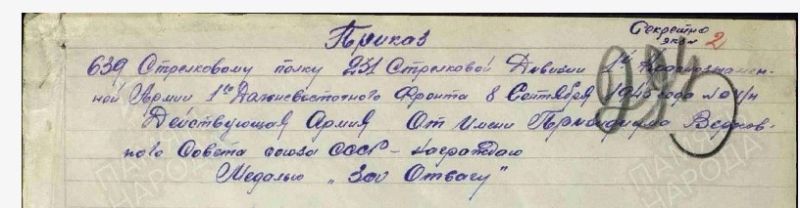 Секретно
экз № 2
Приказ
639 Стрелковому полку 231 Стрелковой Дивизии 1й Краснознамен-
ной Армии 1го Дальневосточного Фронта 8 Сентября 1945 года № 0 /н
Действующая Армия От имени Президиума Верхов-
ного Совета союза СССР – награждаю
Медалью „За Отвагу"
ПАМЯТЬ
НАРОДА